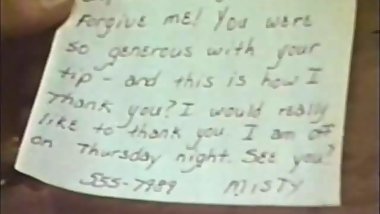 Forgive me! You were
so generous with your
tip - and this is how I
Thank you? I would really
like to thank you. I am off
on Thursday night. See you?
555-7989 MISTY